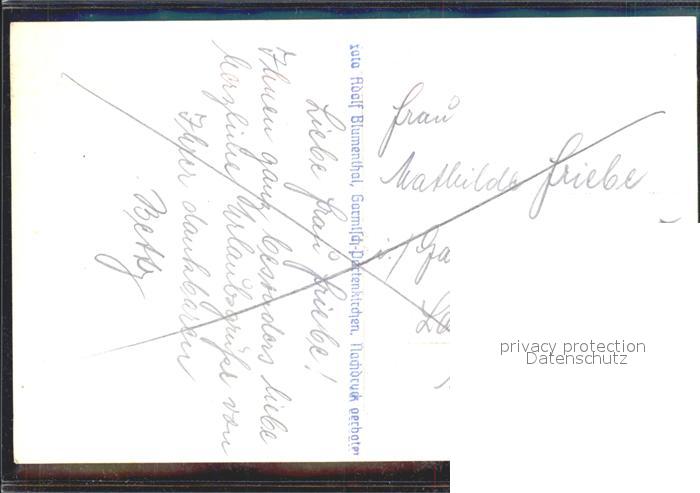 Liebe Frau Friebe!
Ihnen ganz besonders liebe
herzliche Urlaubsgrüße von
Ihrer dankbaren
Betty
Foto Adolf Blumenthal, Garmisch-Partenkirchen. Nachdruck verboten
Frau
Mathilde Friebe
privacy protection
Datenschutz